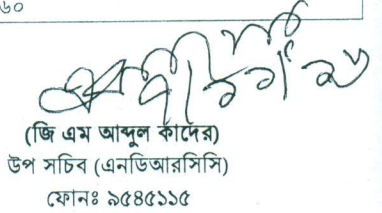 ৬০
(জি এম আব্দুল কাদের)
উপ সচিব (এনডিআরসিসি)
ফোনঃ ৯৫৪৫১১৫